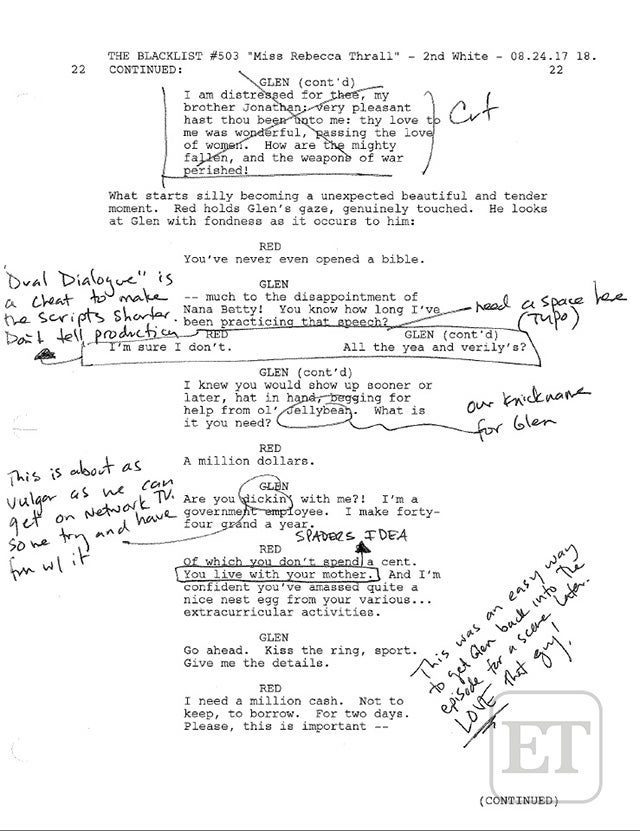 THE BLACKLIST #503 "Miss Rebecca Thrall" - 2nd White - 08.24.17 18.
22 CONTINUED: 22
GLEN (cont'd)
I am distressed for thee, my
brother Jonathan; very pleasant
hast thou been unto me: thy love to
me was wonderful, passing the love
of women. How are the mighty
fallen, and the weapons of war
perished!
Cut
What starts silly becoming a unexpected beautiful and tender
moment. Red holds Glen's gaze, genuinely touched. He looks
at Glen with fondness as it occurs to him:
RED
You've never even opened a bible.
"Dual Dialogue" is
a cheat to make
the scripts shorter.
Don't tell production
GLEN
-- much to the disappointment of
Nana Betty! You know how long I've
been practicing that speech?
need a space here
(TYPO)
RED GLEN (cont'd)
I'm sure I don't. All the yea and verily's?
GLEN (cont'd)
I knew you would show up sooner or
later, hat in hand, begging for
help from ol' Jellybean. What is
it you need?
our knickname
for Glen
RED
A million dollars.
This is about as
vulgar as we can
get on Network TV.
So we try and have
fun w/ it
GLEN
Are you dickin' with me?! I'm a
government employee. I make forty-
four grand a year.
SPADERS IDEA
RED
Of which you don't spend a cent.
You live with your mother. And I'm
confident you've amassed quite a
nice nest egg from your various...
extracurricular activities.
This was an easy way
to get Glen back into the
episode for a scene later.
LOVE that guy!
GLEN
Go ahead. Kiss the ring, sport.
Give me the details.
RED
I need a million cash. Not to
keep, to borrow. For two days.
Please, this is important --
ET
(CONTINUED)